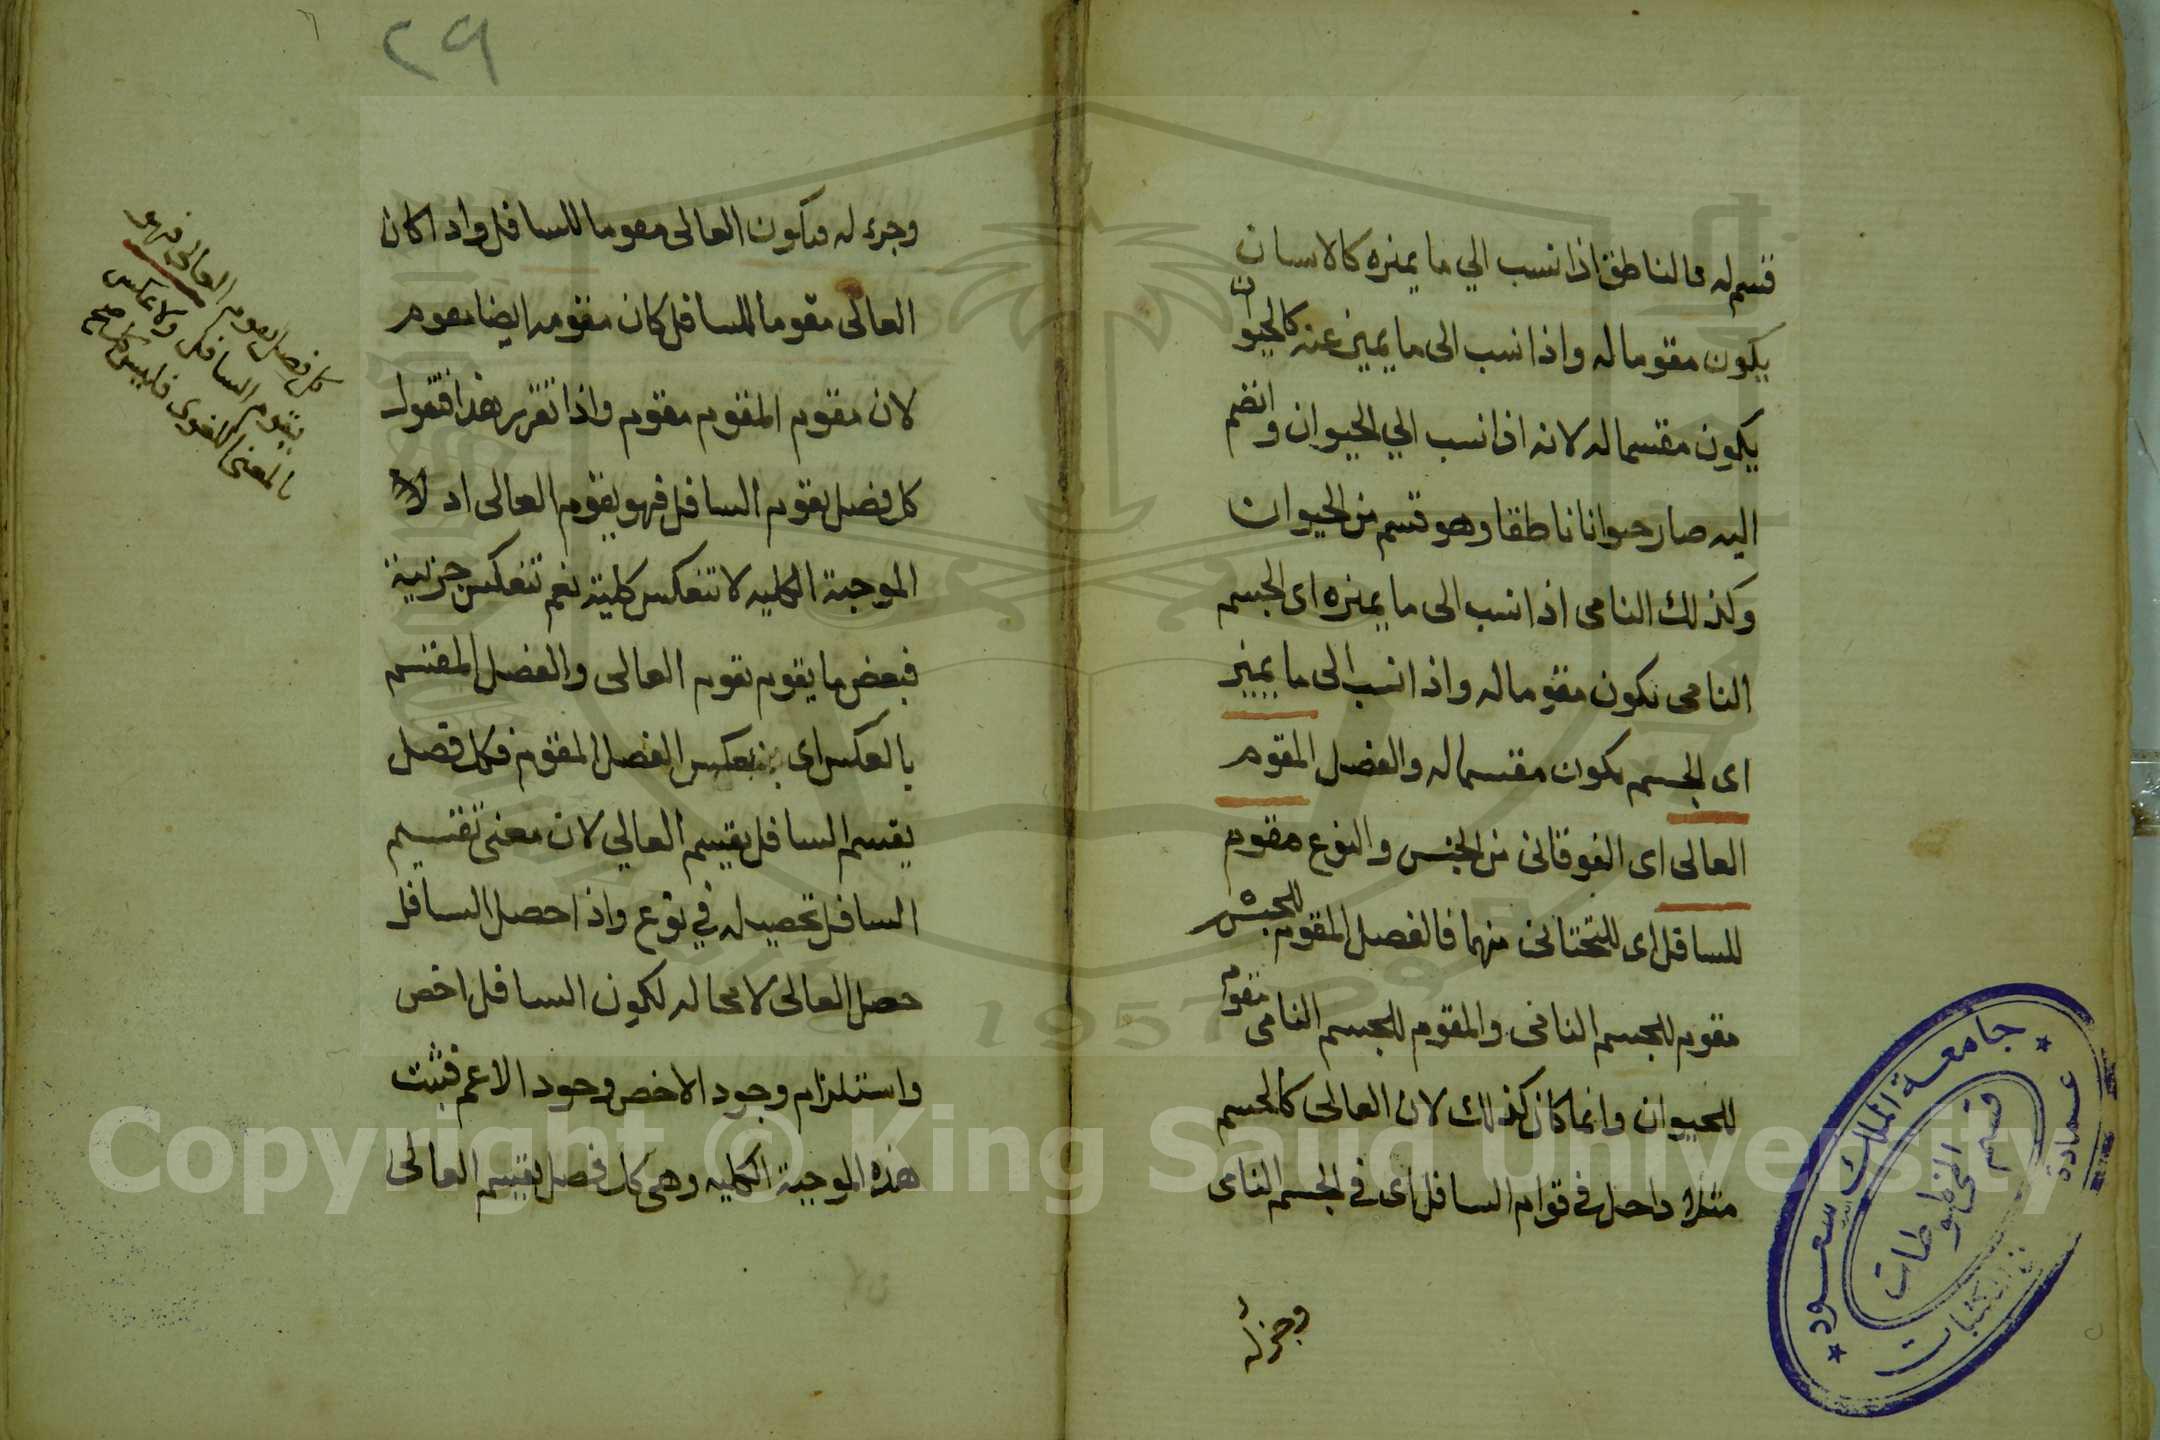 قسم له فالناطق اذا نسب الي ما يميزه كالانسان
يكون مقوما له واذا نسب الى ما يميز عنه كالحيوان
يكون مقسما له لانه اذا نسب الي الحيوان وانضم
اليه صار حيوانا ناطقا وهو قسم من الحيوان
وكذلك النامى اذا نسب الى ما يميزه اى الجسم
النامى يكون مقوما له واذا نسب الى ما يميز
اى الجسم يكون مقسما له والفصل المقوم
العالى اى الفوقانى من الجنس والنوع مقوم
للسافل اى للتحتانى منهما فالفصل المقوم للجنس
مقوم للجسم النامى والمقوم للجسم النامى مقوم
للحيوان وانما كان كذلك لان العالى كالجسم
مثلا داخل فى قوام السافل اى فى الجسم النامى
وجزء له
٢٩
وجزء له فيكون العالى مقوما للسافل واذا كان
العالى مقوما للسافل كان مقومه ايضا مقوم
لان مقوم المقوم مقوم واذا تقرر هذا فنقول
كل فصل يقوم السافل فهو يقوم العالى اذ
الموجبة الكليه لا تنعكس كلية نعم تنعكس جزئية
فبعض ما يقوم يقوم العالى والفصل المقسم
بالعكس اى بعكس الفصل المقوم فكل فصل
يقسم السافل يقسم العالي لان معنى تقسيم
السافل تحصيله في نوع واذا حصل السافل
حصل العالى لا محاله لكون السافل اخص
واستلزام وجود الاخص وجود الاعم فثبت
هذه الموجبة الكليه وهى كل فصل يقسم العالى
كل فصل يقوم العالى فهو
يقوم السافل ولا عكس
بالمعنى اللغوى فليس كل صح
جامعة الملك سعود
عمادة
المكتبات
قسم المخطوطات
1957
Copyright © King Saud University